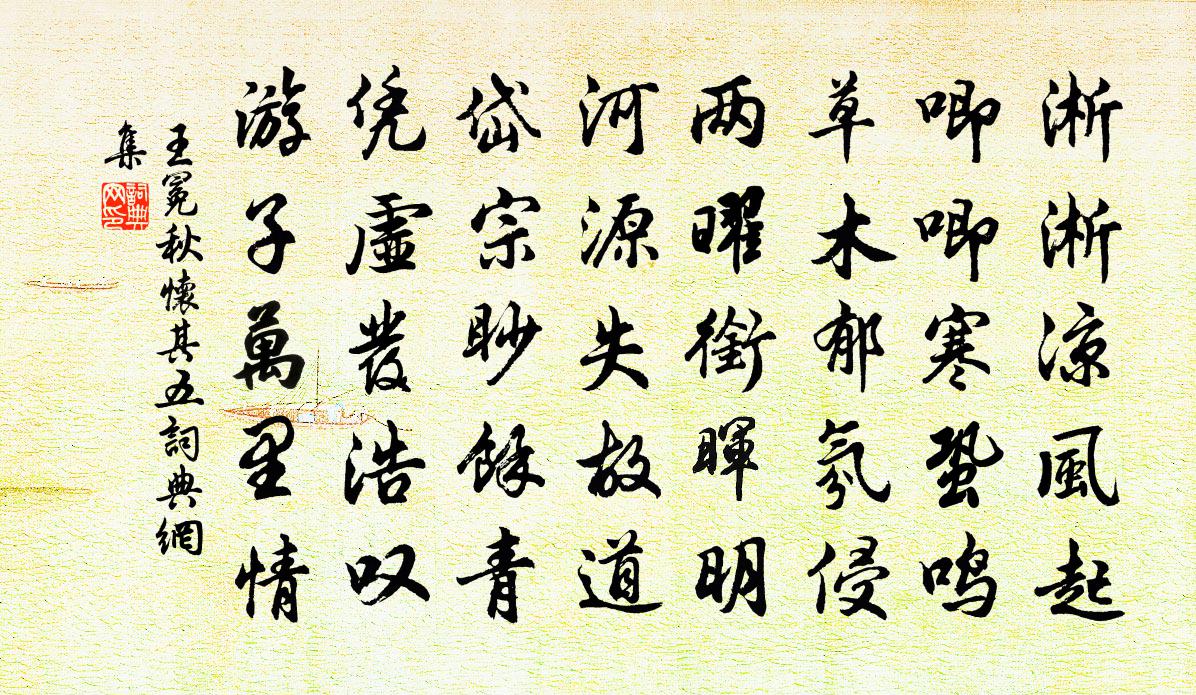 淅淅涼風起
唧唧寒蛩鳴
草木郁氛侵
两曜銜暉明
河源失故道
岱宗眇餘青
凭虛發浩叹
游子萬里情
王冕秋懷其五詞典網
集
詞典网印